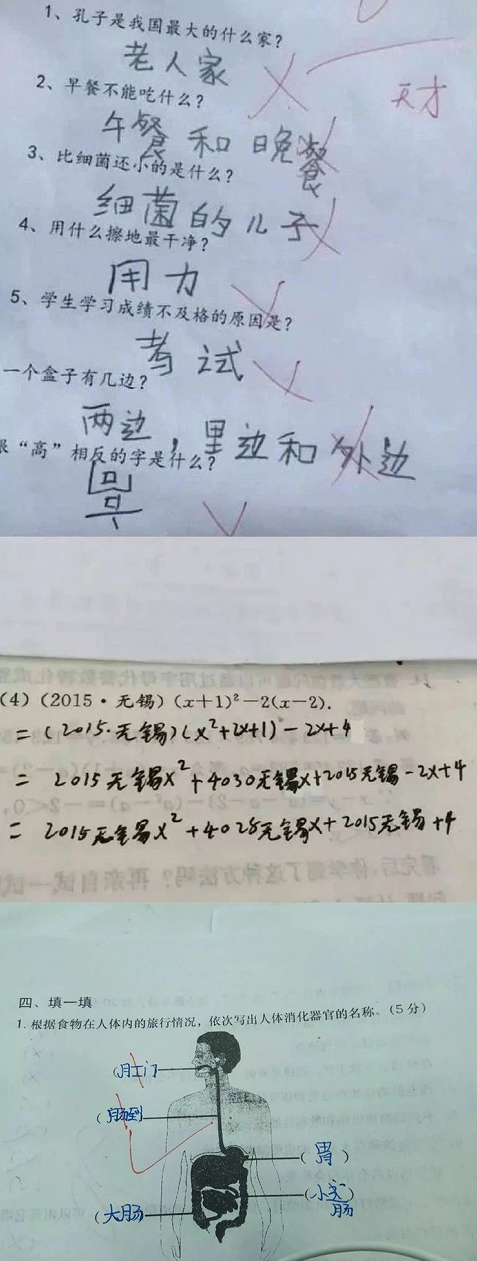 1、孔子是我国最大的什么家?
老人家
天才
2、早餐不能吃什么?
午餐和晚餐
3、比细菌还小的是什么?
细菌的儿子
4、用什么擦地最干净?
用力
5、学生学习成绩不及格的原因是?
考试
一个盒子有几边?
两边，里边和外边
跟“高”相反的字是什么?
(4)(2015·无锡)(x+1)²-2(x-2).
=(2015·无锡)(x²+2x+1)-2x+4
= 2015无锡x²+4030无锡x+2015无锡-2x+4
= 2015无锡x²+4028无锡x+2015无锡+4
四、填一填
1.根据食物在人体内的旅行情况，依次写出人体消化器官的名称。(5分)
(大肠
(胃)
(小肠)